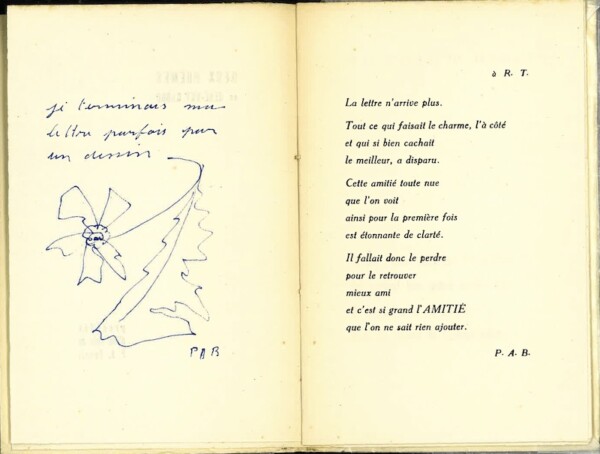 je terminais ma
lettre parfois par
un dessin
PAB
à R. T.
La lettre n'arrive plus.
Tout ce qui faisait le charme, l'à côté
et qui si bien cachait
le meilleur, a disparu.
Cette amitié toute nue
que l'on voit
ainsi pour la première fois
est étonnante de clarté.
Il fallait donc le perdre
pour le retrouver
mieux ami
et c'est si grand l'AMITIÉ
que l'on ne sait rien ajouter.
P. A. B.